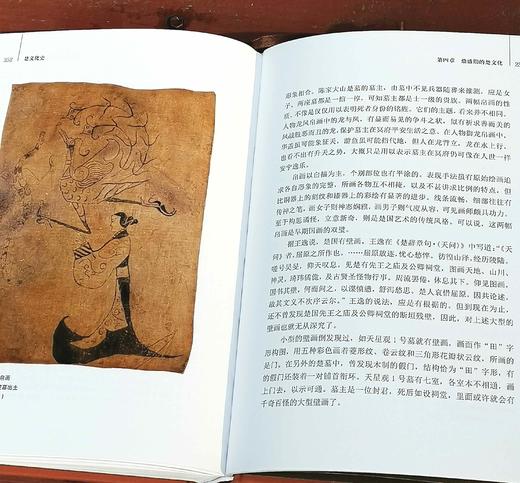 252 楚文化史
帛画
墓出土
）
第四章 鼎盛期的楚文化
形象相合。陈家大山楚墓的墓主，由墓中不见兵器随葬来推测，应是女
子。两座墓都是一棺一椁，可知墓主都是士一级的贵族。两幅帛画的性
质，不像是仅仅用以表明死者身份的铭旌。它们的含义，看来并不相同。
人物龙凤帛画中的龙与凤，有显而易见的争斗之状，似有祈求善而美的
风战胜恶而丑的龙，保护墓主在冥府平安生活之意。在人物御龙帛画中，
华盖虽可能象征天，游鱼虽可能指代地，但人在龙背立，龙在水上行，
也看不出有升天之势，大概只是用以表示墓主在冥府仍可像在人世一样
安宁逸乐。
帛画以白描为主，个别部位也有平涂的。表现手法虽有原始绘画追
求各自形象的完整，所画各物互不相掩，以及不甚讲求比例的特点，但
比铜器上的刻纹和漆器上的彩绘有显著的进步。线条流畅，细部往往有
传神之笔，画女子则神态娴雅，画男子则气度从容，可见画师颇具功力。
至于构思谲怪，立意新奇，则是楚国艺术的传统风格。可以说，这两幅
帛画是早期国画的双璧。
据王逸说，楚国有壁画。王逸在《楚辞章句·〈天问〉》中写道：“《天
问》者，屈原之所作也。……屈原放逐，忧心愁悴。彷徨山泽，经历陵陆。
嗟号昊旻，仰天叹息。见楚有先王之庙及公卿祠堂，图画天地、山川、
神灵，琦玮僪佹，及古贤圣怪物行事。周流罢倦，休息其下，仰见图画，
因书其壁，何而问之，以渫愤懑，舒泻愁思。楚人哀惜屈原，因共论述，
故其文义不次序云尔。”王逸的说法，应是有根据的。但到现在为止，
还不曾发现楚国先王之庙及公卿祠堂的断垣残壁，因此，对上述大型的
壁画也就无从深究了。
小型的壁画倒发现过，如天星观1号墓就有壁画。画面作“田”字
形构图，用五种彩色画着菱形纹、卷云纹和三角形花瓣状云纹，所画的
是门。在另外的楚墓中，曾发现木制的假门，结构恰为“田”字形，有
的假门还装着一对铺首衔环。天星观1号墓有七室，各室本不相通，画
上门去，以示可通。墓主是一位封君，死后如设祠堂，里面或许就会有
千奇百怪的大型壁画了。